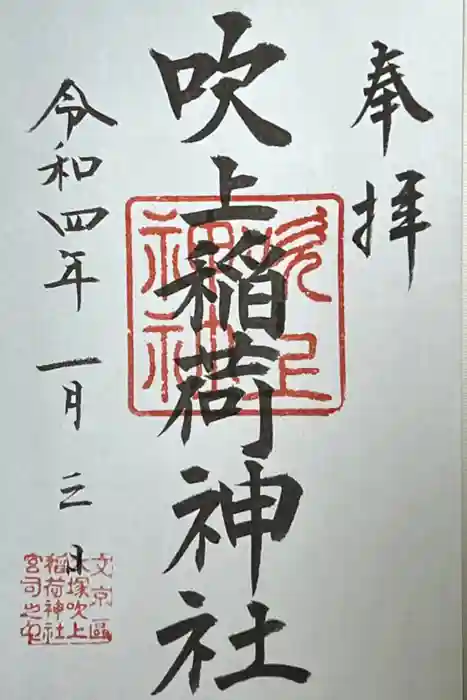 奉拝
吹上稲荷神社
令和四年一月三日
文京區
大塚吹上
稲荷神社
宮司之印